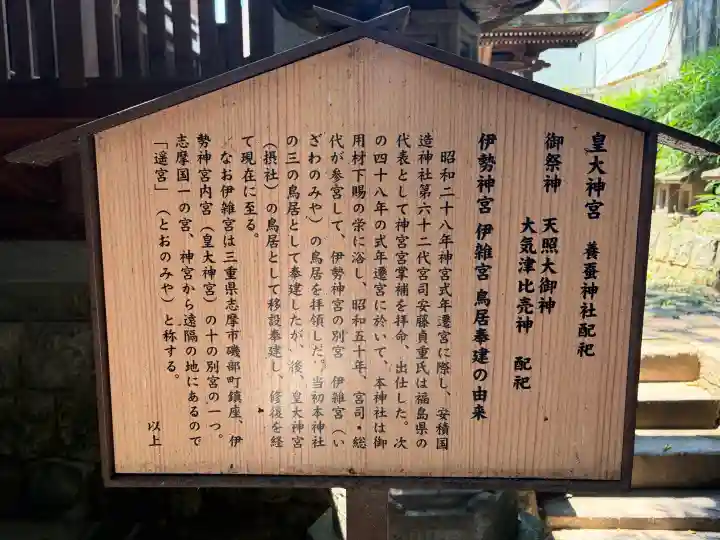 皇大神宮　養蚕神社配祀
御祭神　天照大御神
大気津比売神　配祀
伊勢神宮 伊雑宮 鳥居奉建の由来
昭和二十八年神宮式年遷宮に際し、安積国
造神社第六十二代宮司安藤貞重氏は福島県の
代表として神宮宮掌補を拝命、出仕した。次
の四十八年の式年遷宮に於いて、本神社は御
用材下賜の栄に浴し、昭和五十年、宮司・総
代が参宮して、伊勢神宮の別宮 伊雑宮（い
ざわのみや）の鳥居を拝領した。当初本神社
の三の鳥居として奉建したが、後、皇大神宮
（摂社）の鳥居として移設奉建し、修復を経
て現在に至る。
なお伊雑宮は三重県志摩市磯部町鎮座、伊
勢神宮内宮（皇大神宮）の十の別宮の一つ。
志摩国一の宮、神宮から遠隔の地にあるので
「遥宮」（とおのみや）と称する。
以上